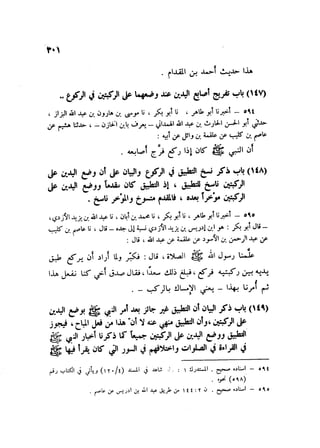 ٣٠١
هذا حديث أحمد بن المقدام .
(١٤٧) باب تفريج أصابع اليدين عند وضعهما على الركبتين في الركوع ..
٥٩٤ – أخبرنا أبو طاهر ، نا أبو بكر ، نا موسى بن هارون بن عبد الله البزاز ،
حدثني الحسن أبو الحارث بن عبد الله الهمداني – يعرف بابن الخازن – ، حدثنا هشيم عن
عاصم بن كليب عن علقمة بن وائل عن أبيه :
أن النبي ﷺ كان إذا ركع فرج أصابعه .
(١٤٨) باب ذكر نسخ التطبيق في الركوع والبيان على أن وضع اليدين على
الركبتين ناسخ للتطبيق ، إذ التطبيق كان مقدماً ووضع اليدين على
الركبتين مؤخراً بعده ، فالمقدم منسوخ والمؤخر ناسخ .
٥٩٥ – أخبرنا أبو طاهر ، نا أبو بكر ، نا محمد بن أبان ، نا عبد الله بن يزيد الأودي ،
قال أبو بكر : هو ابن إدريس بن يزيد الأودي نسبه إلى جده ، قال : نا عاصم بن كليب
عن عبد الرحمن بن الأسود عن علقمة عن عبد الله ، قال :
علمنا رسول الله ﷺ الصلاة ، قال : فكبر ولما أراد أن يركع طبق
يديه بين ركبتيه فركع ، فبلغ ذلك سعداً ، فقال : صدق أخي كنا نفعل هذا
ثم أمرنا بهذا – يعني الإمساك بالركب – .
(١٤٩) باب ذكر البيان أن التطبيق غير جائز بعد أمر النبي ﷺ بوضع اليدين
على الركبتين ، وأن التطبيق منهي عنه لا أن هذا من فعل المباح ، فيجوز
التطبيق ووضع اليدين على الركبتين جميعاً كما ذكرنا أخبار النبي ﷺ
في القراءة في الصلوات واختلافهم في السور التي كان يقرأ فيها ﷺ
٥٩٤ – اسناده صحيح . المستدرك ١ :
(٥٩٨) نحوه .
٥٩٥ – اسناده صحيح . ن ٢ : ١٤٤ من طريق عبد الله بن ادريس عن عاصم .